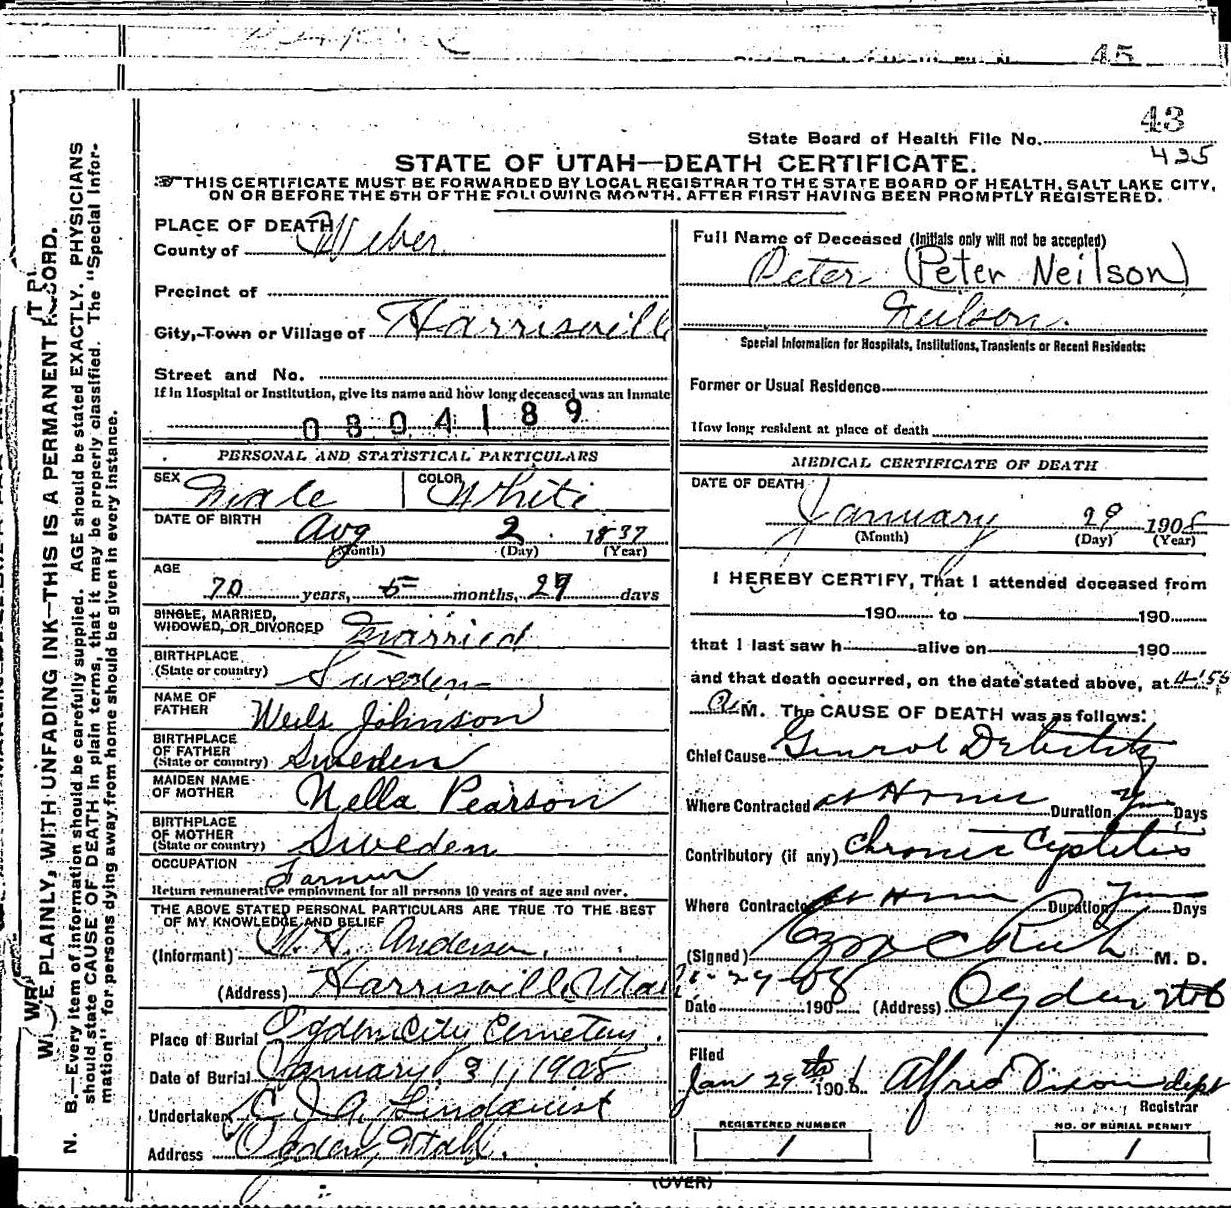 45
43
State Board of Health File No.
425
STATE OF UTAH—DEATH CERTIFICATE.
THIS CERTIFICATE MUST BE FORWARDED BY LOCAL REGISTRAR TO THE STATE BOARD OF HEALTH, SALT LAKE CITY,
ON OR BEFORE THE 5TH OF THE FOLLOWING MONTH, AFTER FIRST HAVING BEEN PROMPTLY REGISTERED.
PLACE OF DEATH
County of Weber
Precinct of
City, Town or Village of Harrisvill
Street and No.
If in Hospital or Institution, give its name and how long deceased was an inmate
0804189
PERSONAL AND STATISTICAL PARTICULARS
SEX Male COLOR White
DATE OF BIRTH Aug 2 1837
(Month) (Day) (Year)
AGE
70 years, 5 months, 27 days
SINGLE, MARRIED,
WIDOWED, OR DIVORCED Married
BIRTHPLACE
(State or country) Sweden
NAME OF
FATHER Neils Johnson
BIRTHPLACE
OF FATHER
(State or country) Sweden
MAIDEN NAME
OF MOTHER Nella Pearson
BIRTHPLACE
OF MOTHER
(State or country) Sweden
OCCUPATION Farmer
Return remunerative employment for all persons 10 years of age and over.
THE ABOVE STATED PERSONAL PARTICULARS ARE TRUE TO THE BEST
OF MY KNOWLEDGE AND BELIEF
(Informant) Anderson
(Address) Harrisville Utah
Place of Burial Ogden City Cemetery.
Date of Burial January 31, 1908
Undertaker Lindquist
Address Ogden, Utah.
Full Name of Deceased (Initials only will not be accepted)
Peter (Peter Neilson)
Neilson.
Special Information for Hospitals, Institutions, Transients or Recent Residents:
Former or Usual Residence
How long resident at place of death
MEDICAL CERTIFICATE OF DEATH
DATE OF DEATH
January 29 1908
(Month) (Day) (Year)
I HEREBY CERTIFY, That I attended deceased from
190 to 190
that I last saw h alive on 190
and that death occurred, on the date stated above, at 4:55
M. The CAUSE OF DEATH was as follows:
Chief Cause Genral Debility
Where Contracted at Home Duration Days
Contributory (if any) Chronic Cystitis
Where Contracted at Home Duration Days
(Signed) Rich M. D.
Date 1-29-08 190 (Address) Ogden Utah
Filed
Jan 29th 1908 Alfred Dixon dept
Registrar
REGISTERED NUMBER
1
NO. OF BURIAL PERMIT
1
(OVER)
WRITE PLAINLY, WITH UNFADING INK—THIS IS A PERMANENT RECORD.
N. B.—Every item of information should be carefully supplied. AGE should be stated EXACTLY. PHYSICIANS
should state CAUSE OF DEATH in plain terms, that it may be properly classified. The "Special Infor-
mation" for persons dying away from home should be given in every instance.